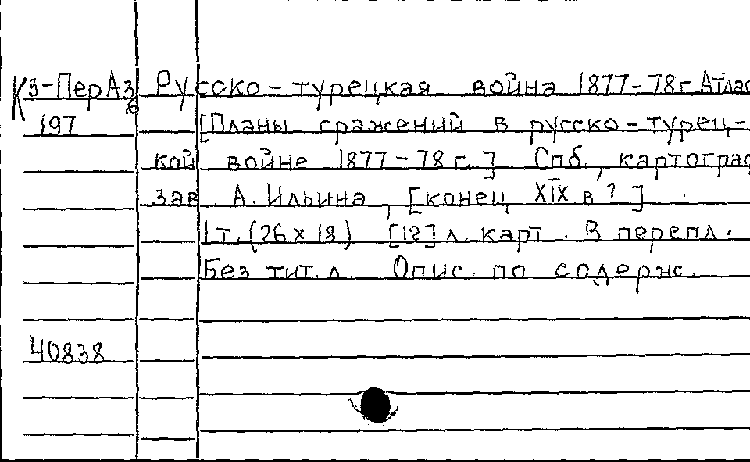 К3-ПерАз Русско-турецкая война 1877-78г. Атлас
6
197 [Планы сражений в русско-турец-
кой войне 1877-78 г.] Спб., картограф
зав А. Ильина, [конец XIX в ?]
1 т. (26 х 18) [18] л. карт. В перепл.
Без тит. л. Опис. по содерж.
40838